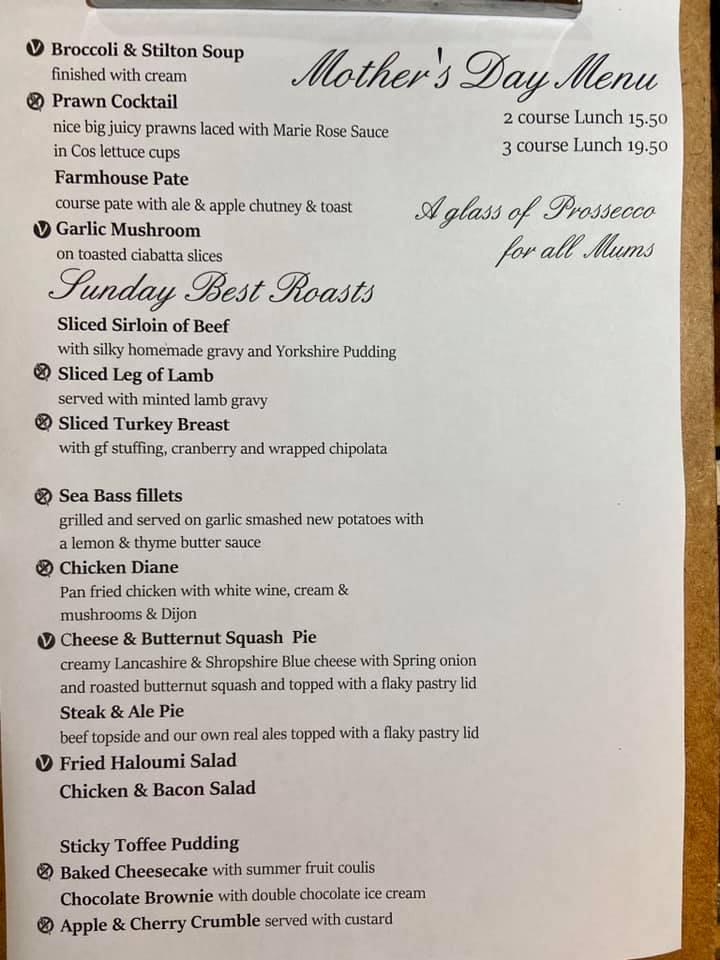 Mother's Day Menu
2 course Lunch 15.50
3 course Lunch 19.50
A glass of Prossecco
for all Mums
V Broccoli & Stilton Soup
finished with cream
Prawn Cocktail
nice big juicy prawns laced with Marie Rose Sauce
in Cos lettuce cups
Farmhouse Pate
course pate with ale & apple chutney & toast
V Garlic Mushroom
on toasted ciabatta slices
Sunday Best Roasts
Sliced Sirloin of Beef
with silky homemade gravy and Yorkshire Pudding
Sliced Leg of Lamb
served with minted lamb gravy
Sliced Turkey Breast
with gf stuffing, cranberry and wrapped chipolata
Sea Bass fillets
grilled and served on garlic smashed new potatoes with
a lemon & thyme butter sauce
Chicken Diane
Pan fried chicken with white wine, cream &
mushrooms & Dijon
V Cheese & Butternut Squash Pie
creamy Lancashire & Shropshire Blue cheese with Spring onion
and roasted butternut squash and topped with a flaky pastry lid
Steak & Ale Pie
beef topside and our own real ales topped with a flaky pastry lid
V Fried Haloumi Salad
Chicken & Bacon Salad
Sticky Toffee Pudding
Baked Cheesecake with summer fruit coulis
Chocolate Brownie with double chocolate ice cream
Apple & Cherry Crumble served with custard